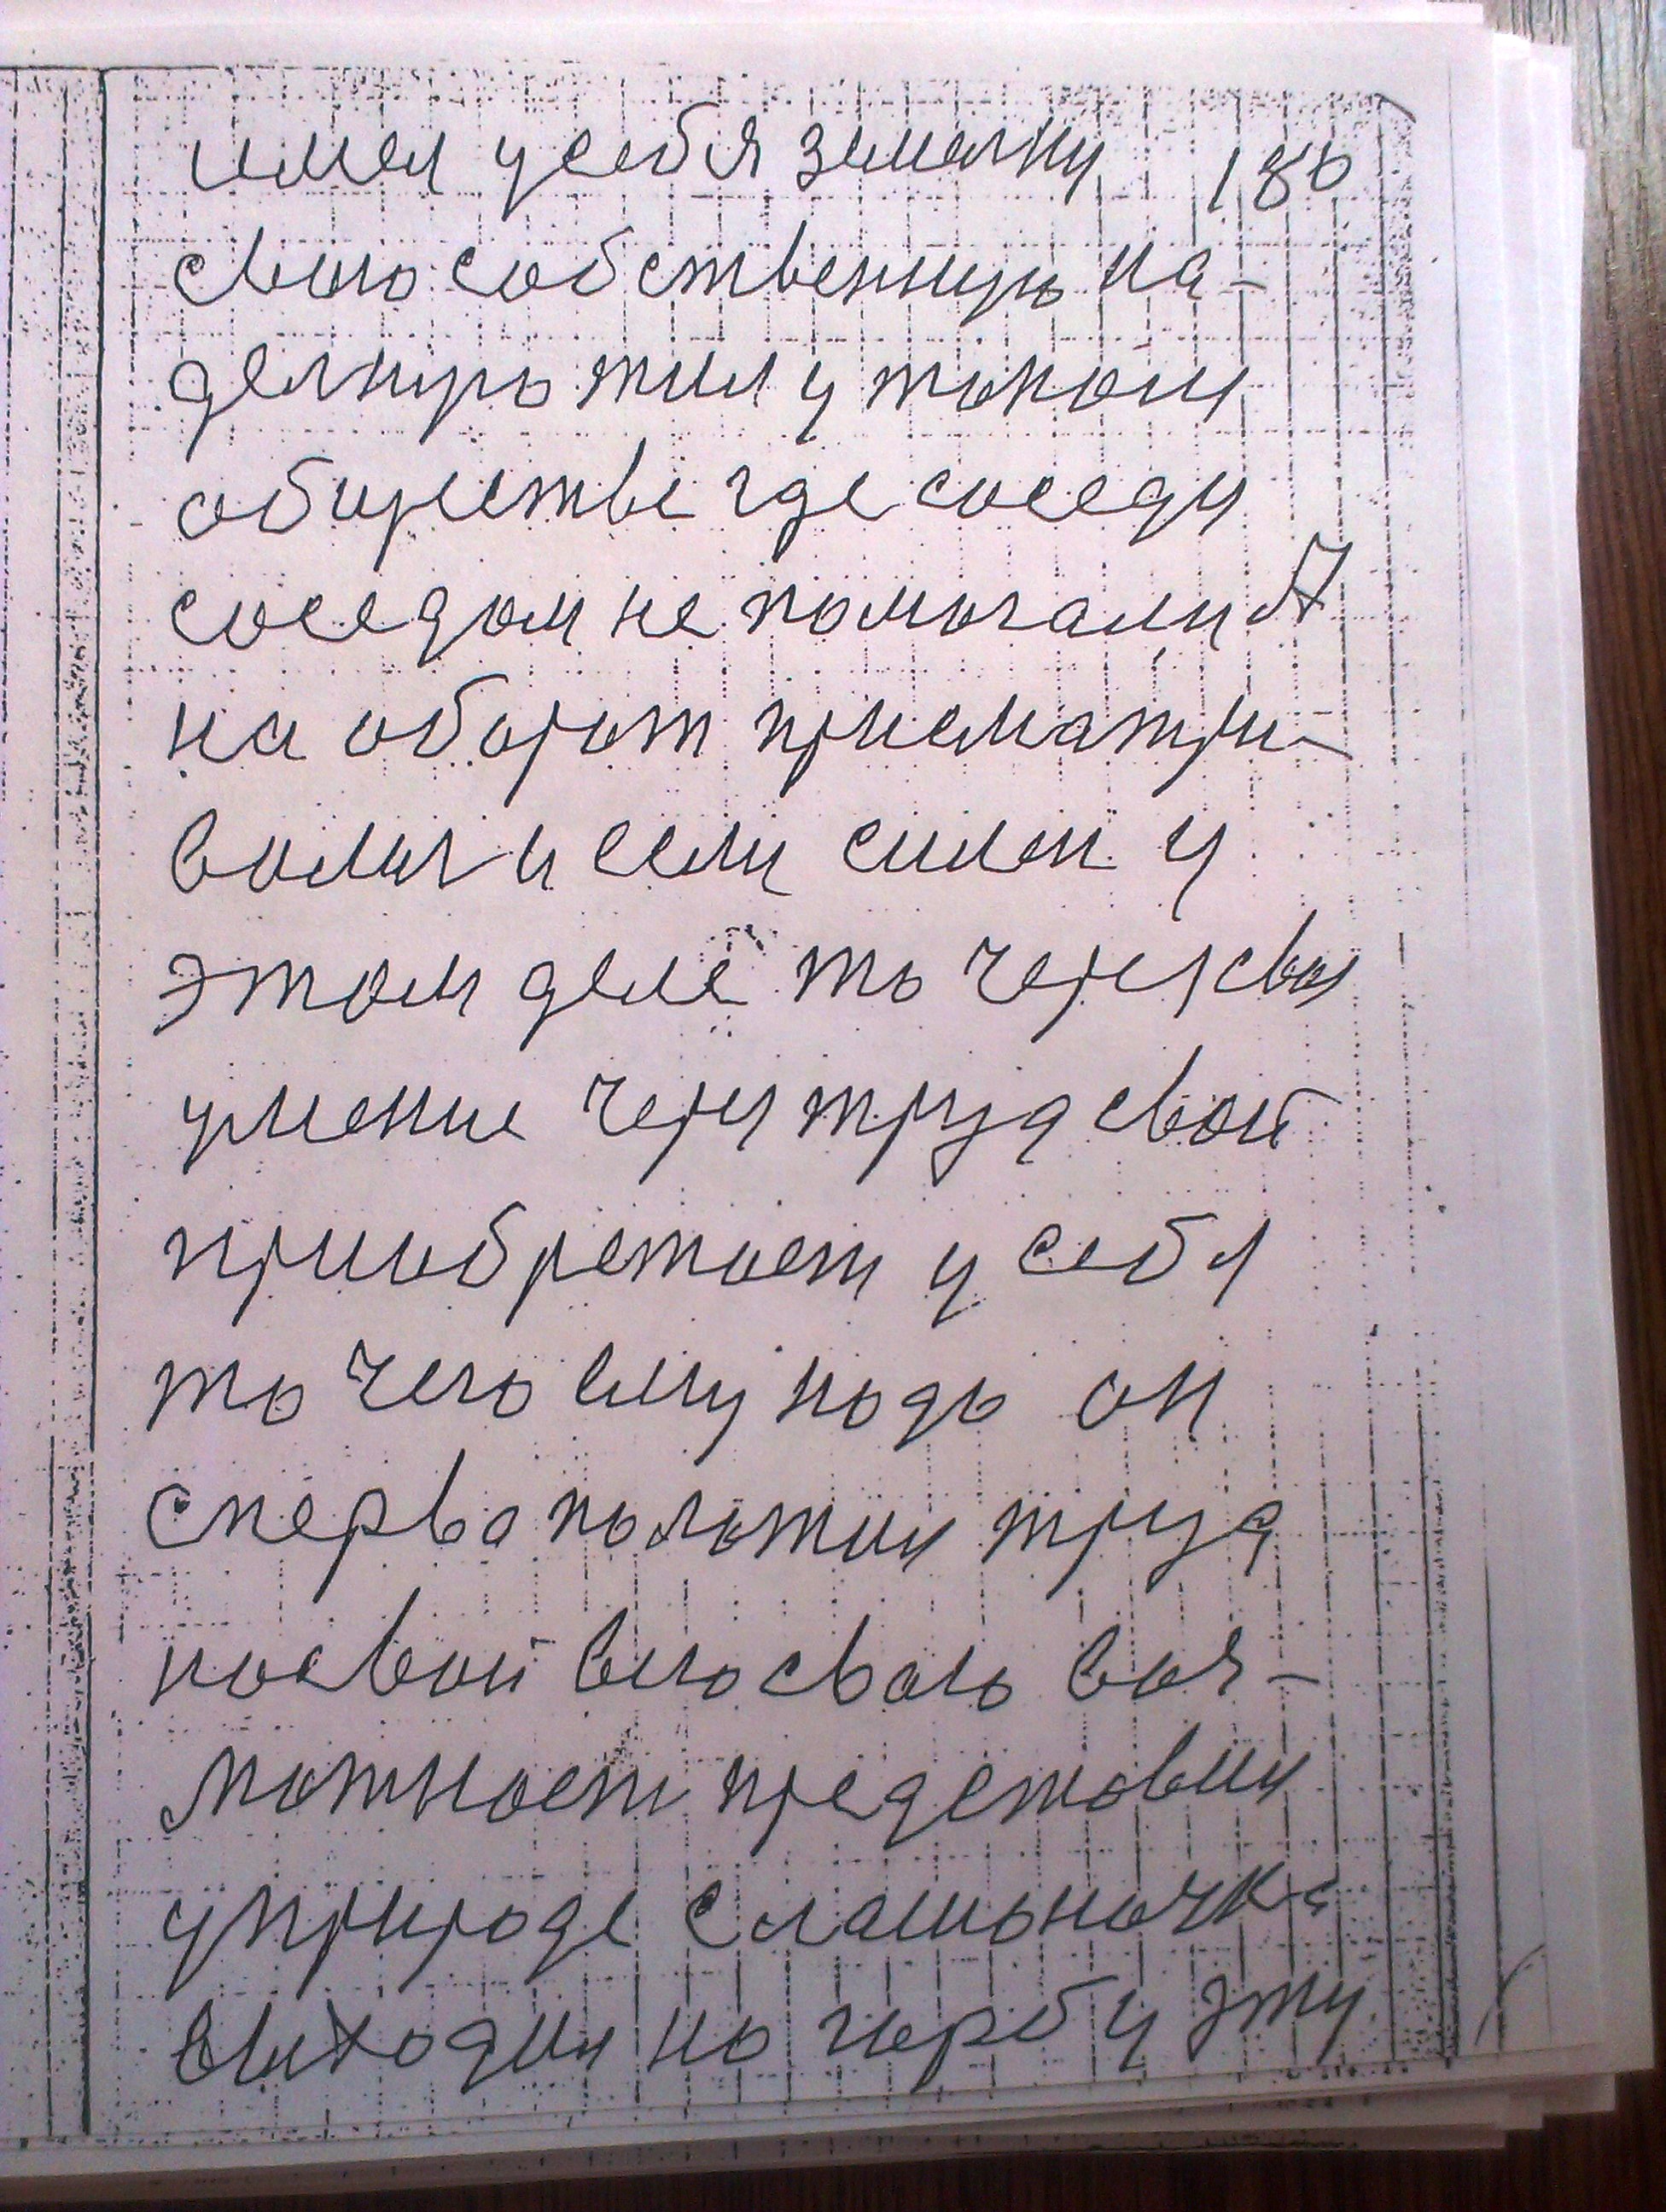 имел у себя земельку 186
свою собственную на-
дельную жил у таком
обществе где соседи
соседам не помогали А
на оборот присматри-
вались и если силен у
этом деле то через свое
умение через труд свой
приобретает у себя
то чего ему надо он
сперва положил труд
на свой его свою воз-
можност представил
у природе с лашоночка
выходил на горбу эту